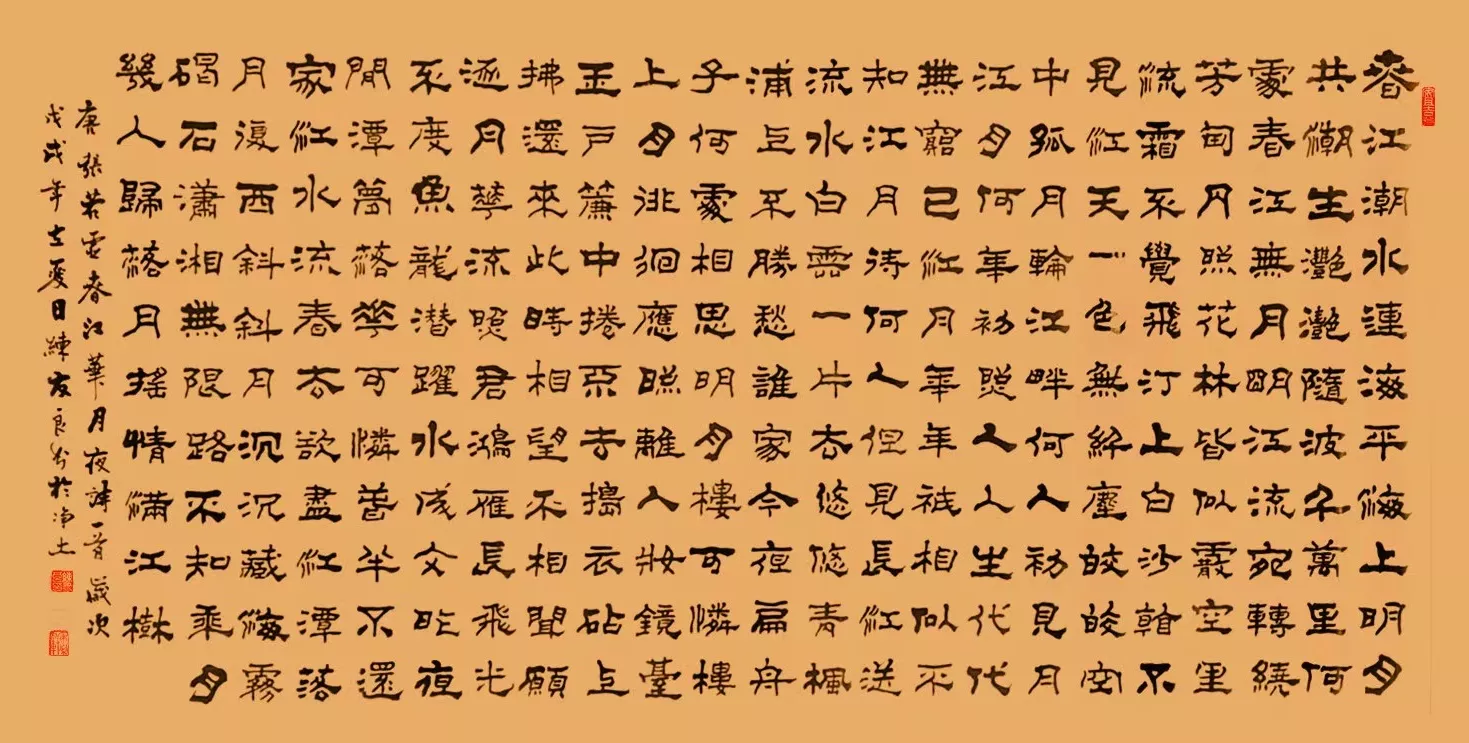 春江潮水連海平海上明月
共潮生灧灧隨波千萬里何
處春江無月明江流宛轉繞
芳甸月照花林皆似霰空里
流霜不覺飛汀上白沙看不
見江天一色無纤塵皎皎空
中孤月輪江畔何人初見月
江月何年初照人人生代代
無窮已江月年年衹相似不
知江月待何人但見長江送
流水白雲一片去悠悠青楓
浦上不勝愁誰家今夜扁舟
子何處相思明月樓可憐樓
上月徘徊應照離人妝鏡臺
玉戶簾中捲不去搗衣砧上
拂還來此時相望不相聞願
逐月華流照君鴻雁長飛光
不度魚龍潛躍水成文昨夜
閒潭夢落華可憐春半不還
家江水流春去欲盡江潭落
月復西斜斜月沉沉藏海霧
碣石瀟湘無限路不知乘月
幾人歸落月搖情滿江樹
唐張若虛春江華月夜詩一首歲次
戊戌年立夏日練友良书於净土